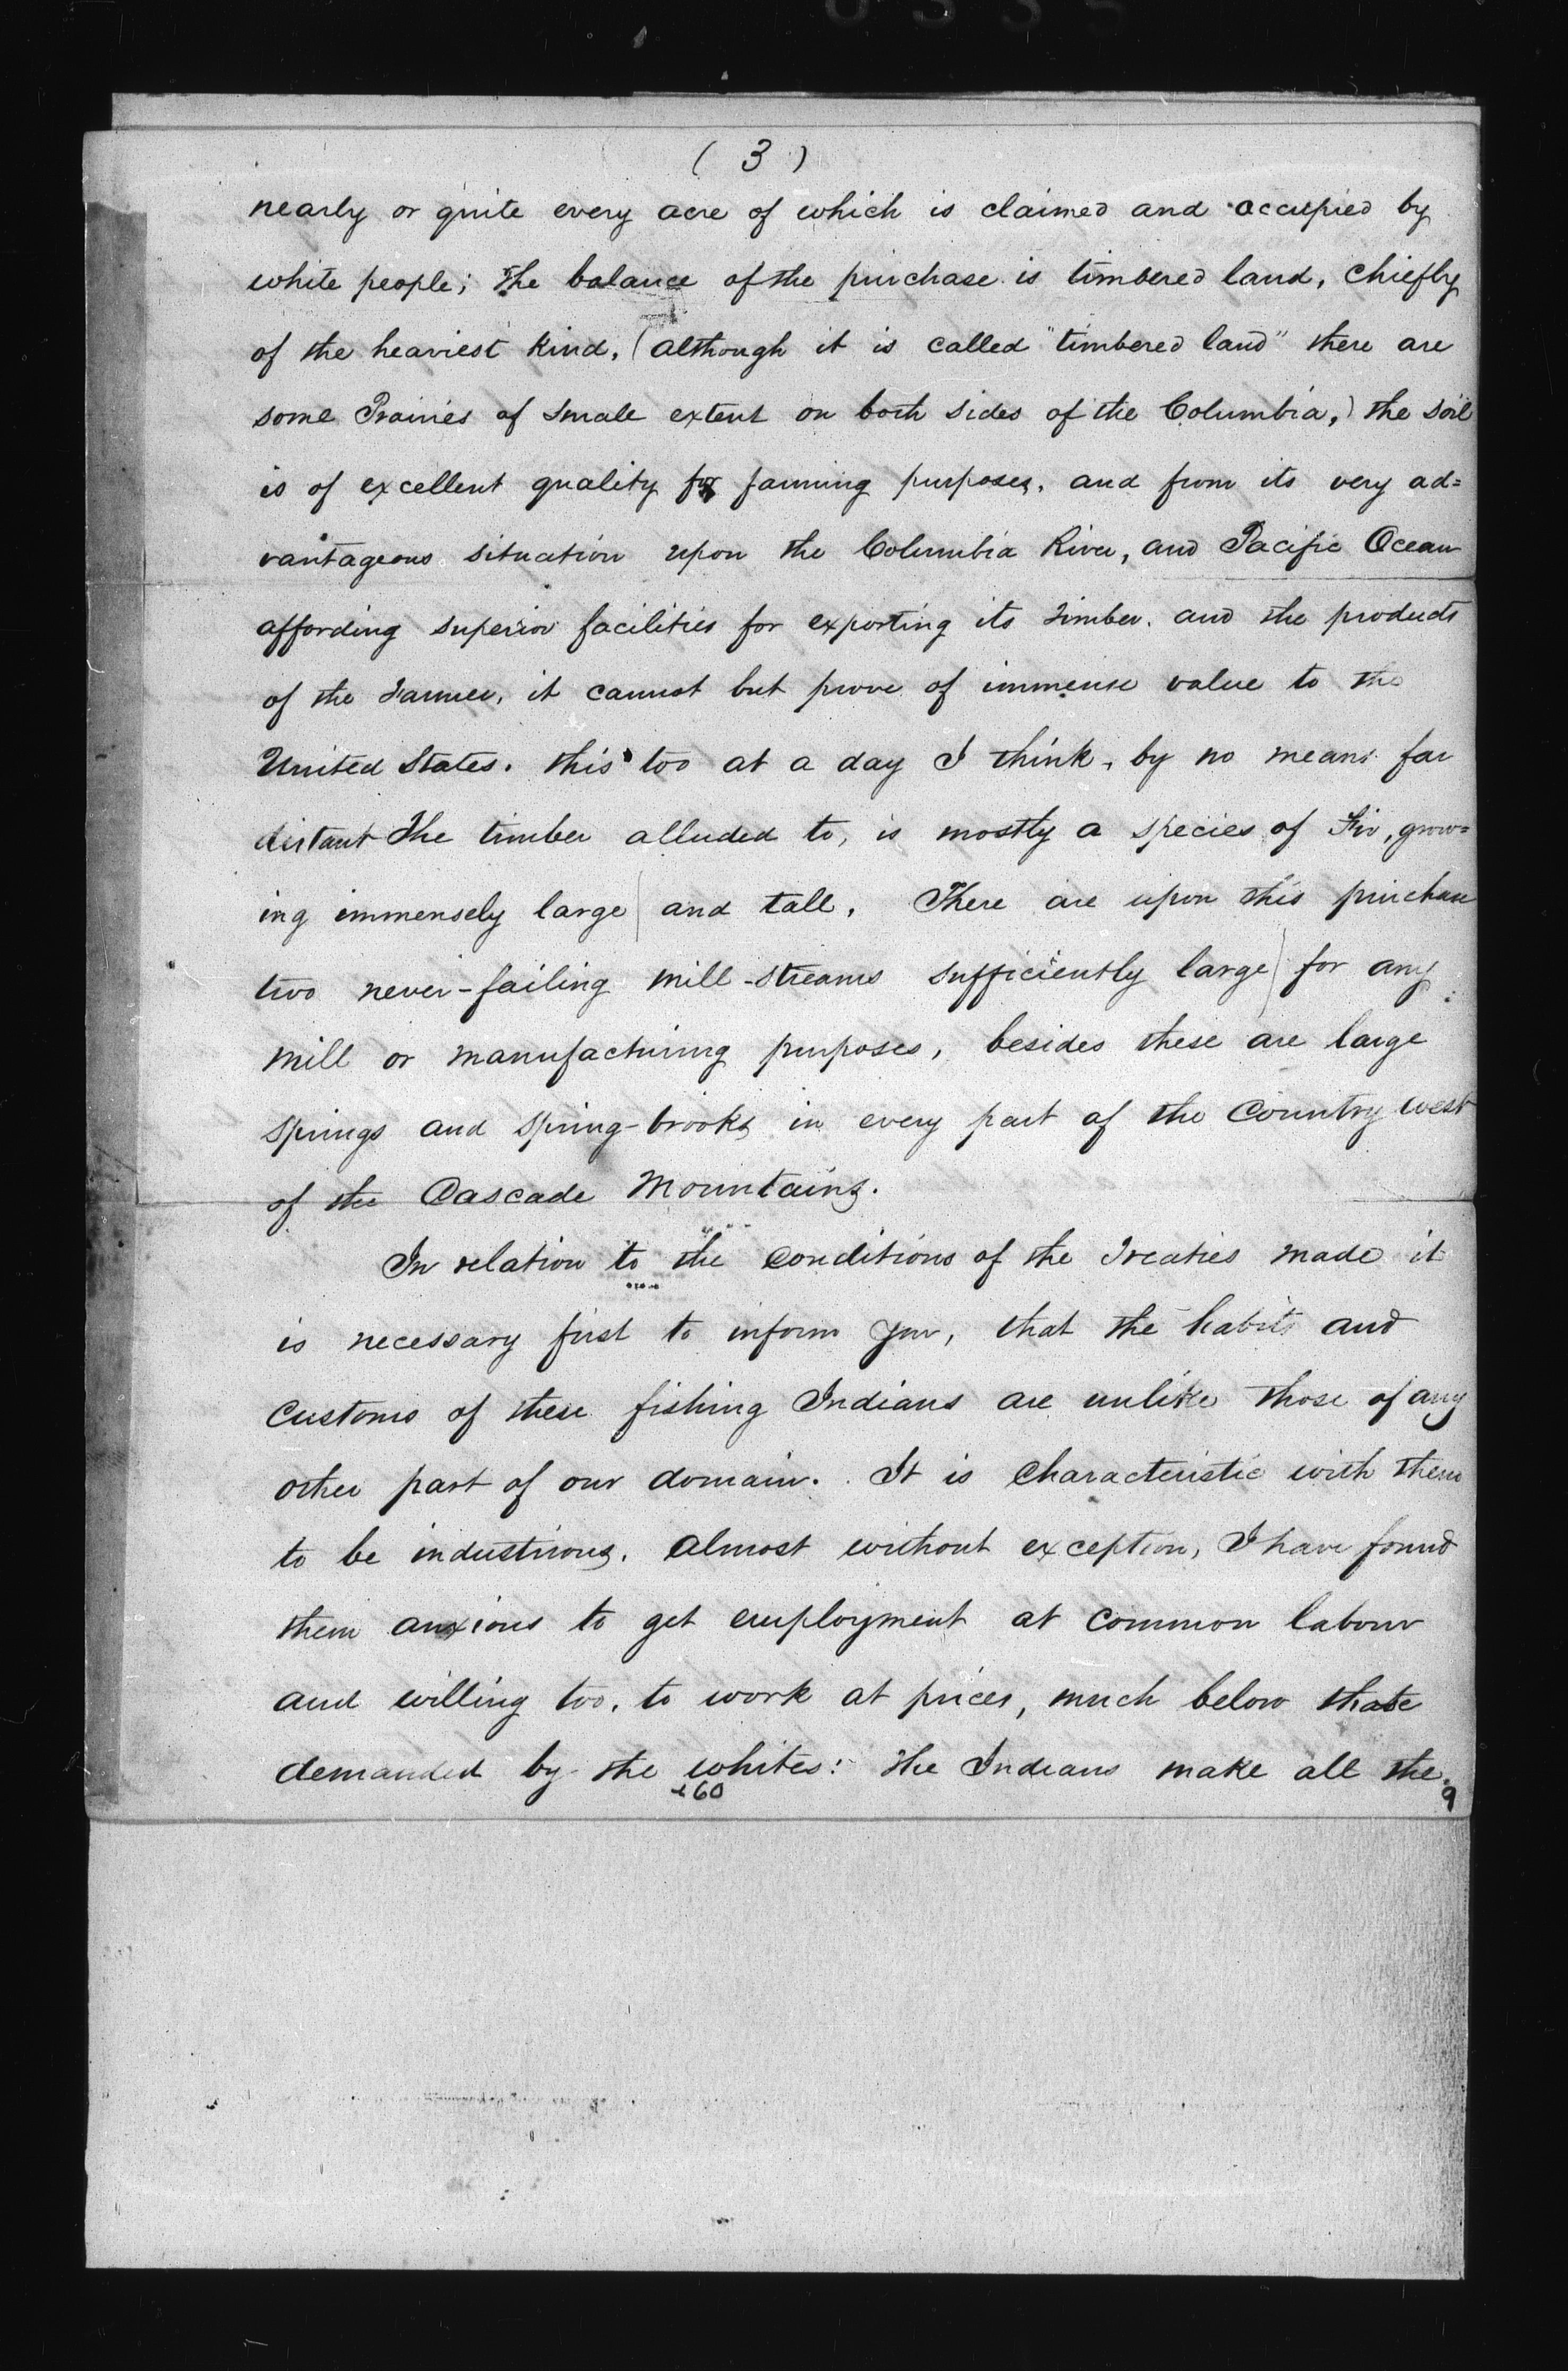 ( 3 )
nearly or quite every acre of which is claimed and occupied by
white people; the balance of the purchase is timbered land, chiefly
of the heaviest kind, (although it is called "timbered land" there are
some Prairies of small extent on both sides of the Columbia,) the soil
is of excellent quality for farming purposes, and from its very ad=
vantageous situation upon the Columbia River, and Pacific Ocean
affording superior facilities for exporting its timber, and the products
of the Farmer, it cannot but prove of immense value to the
United States. this too at a day I think, by no means far
distant The timber alluded to, is mostly a species of Fir, grow=
ing immensely large and tall. There are upon this purchase
two never-failing mill-streams sufficiently large for any
mill or manufacturing purposes, besides these are large
springs and spring-brooks in every part of the Country west
of the Cascade Mountains.
In relation to the conditions of the Treaties made it
is necessary first to inform you, that the habits and
customs of these fishing Indians are unlike those of any
other part of our domain. It is characteristic with them
to be industrious. almost without exception, I have found
them anxious to get employment at common labour
and willing too, to work at prices, much below that
demanded by the whites: the Indians make all the
60
9